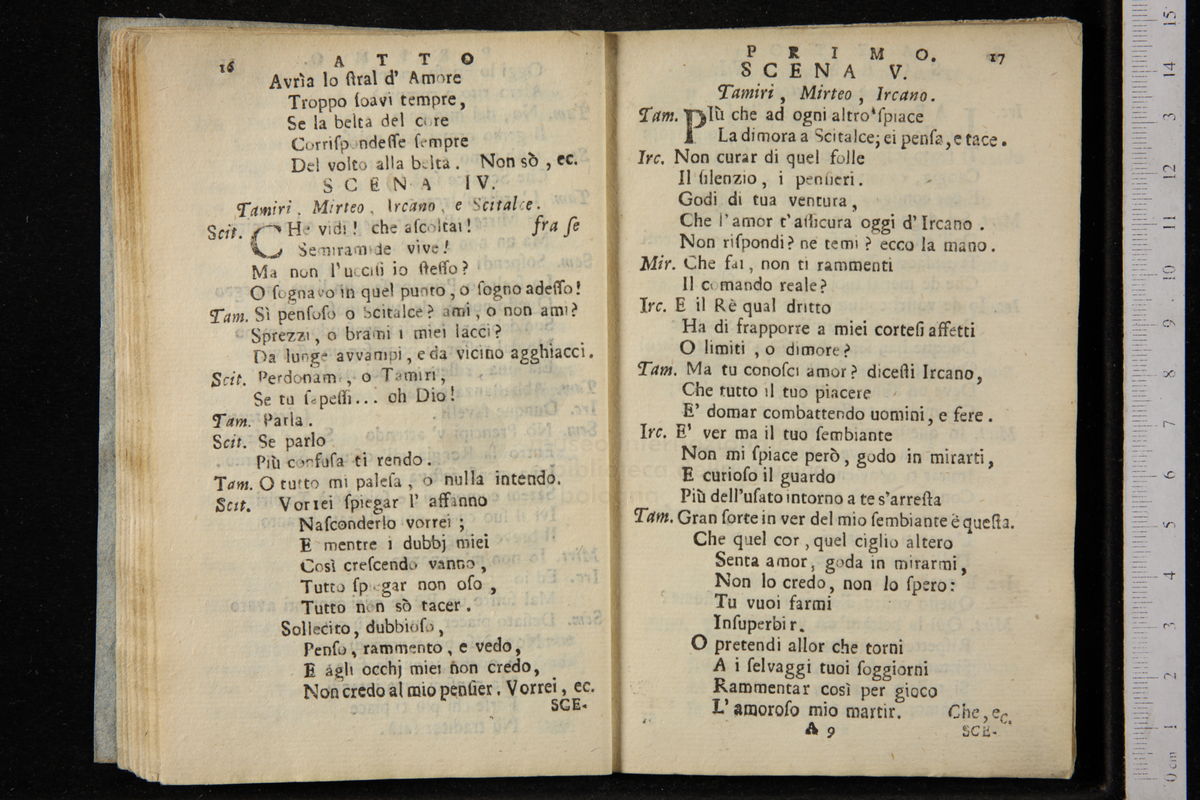 16 ATTO
Avrìa lo ſtral d' Amore
Troppo ſoavi tempre,
Se la beltà del core
Corriſpondeſſe ſempre
Del volto alla beltà. Non sò, ec.
SCENA IV.
Tamiri, Mirteo, Ircano, e Scitalce.
Scit. CHe vidi! che aſcoltai! fra ſe
Semiramide vive!
Ma non l'ucciſi io ſteſſo?
O ſognavo in quel punto, o ſogno adeſſo!
Tam. Sì penſoſo o Scitalce? ami, o non ami?
Sprezzi, o brami i miei lacci?
Da lunge avvampi, e da vicino agghiacci.
Scit. Perdonami, o Tamiri,
Se tu ſapeſſi... oh Dio!
Tam. Parla.
Scit. Se parlo
Più confuſa ti rendo.
Tam. O tutto mi paleſa, o nulla intendo.
Scit. Vorrei ſpiegar l' affanno
Naſconderlo vorrei;
E mentre i dubbj miei
Così creſcendo vanno,
Tutto ſpiegar non oſo,
Tutto non sò tacer.
Sollecito, dubbioſo,
Penſo, rammento, e vedo,
E agli occhj miei non credo,
Non credo al mio penſier. Vorrei, ec.
SCE-
PRIMO. 17
SCENA V.
Tamiri, Mirteo, Ircano.
Tam. PIù che ad ogni altro ſpiace
La dimora a Scitalce; ei penſa, e tace.
Irc. Non curar di quel folle
Il ſilenzio, i penſieri.
Godi di tua ventura,
Che l'amor t'aſſicura oggi d'Ircano.
Non riſpondi? ne temi? ecco la mano.
Mir. Che fai, non ti rammenti
Il comando reale?
Irc. E il Rè qual dritto
Ha di frapporre a miei corteſi affetti
O limiti, o dimore?
Tam. Ma tu conoſci amor? diceſti Ircano,
Che tutto il tuo piacere
E' domar combattendo uomini, e fere.
Irc. E' ver ma il tuo ſembiante
Non mi ſpiace però, godo in mirarti,
E curioſo il guardo
Più dell'uſato intorno a te s'arreſta
Tam. Gran ſorte in ver del mio ſembiante è queſta.
Che quel cor, quel ciglio altero
Senta amor, goda in mirarmi,
Non lo credo, non lo ſpero:
Tu vuoi farmi
Inſuperbir.
O pretendi allor che torni
A i ſelvaggi tuoi ſoggiorni
Rammentar così per gioco
L' amoroſo mio martir. Che, ec.
A 9 SCE-